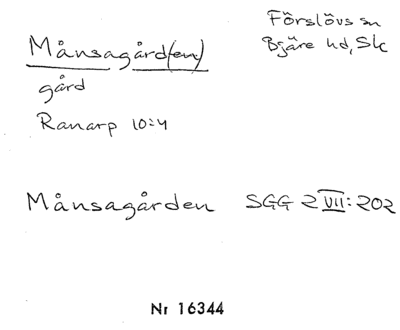 Månsagård(en)
Förslövs sn
Bjäre hd, Sk
gård
Ranarp 10:4
Månsagården SGG 2 VII: 202
Nr 16344